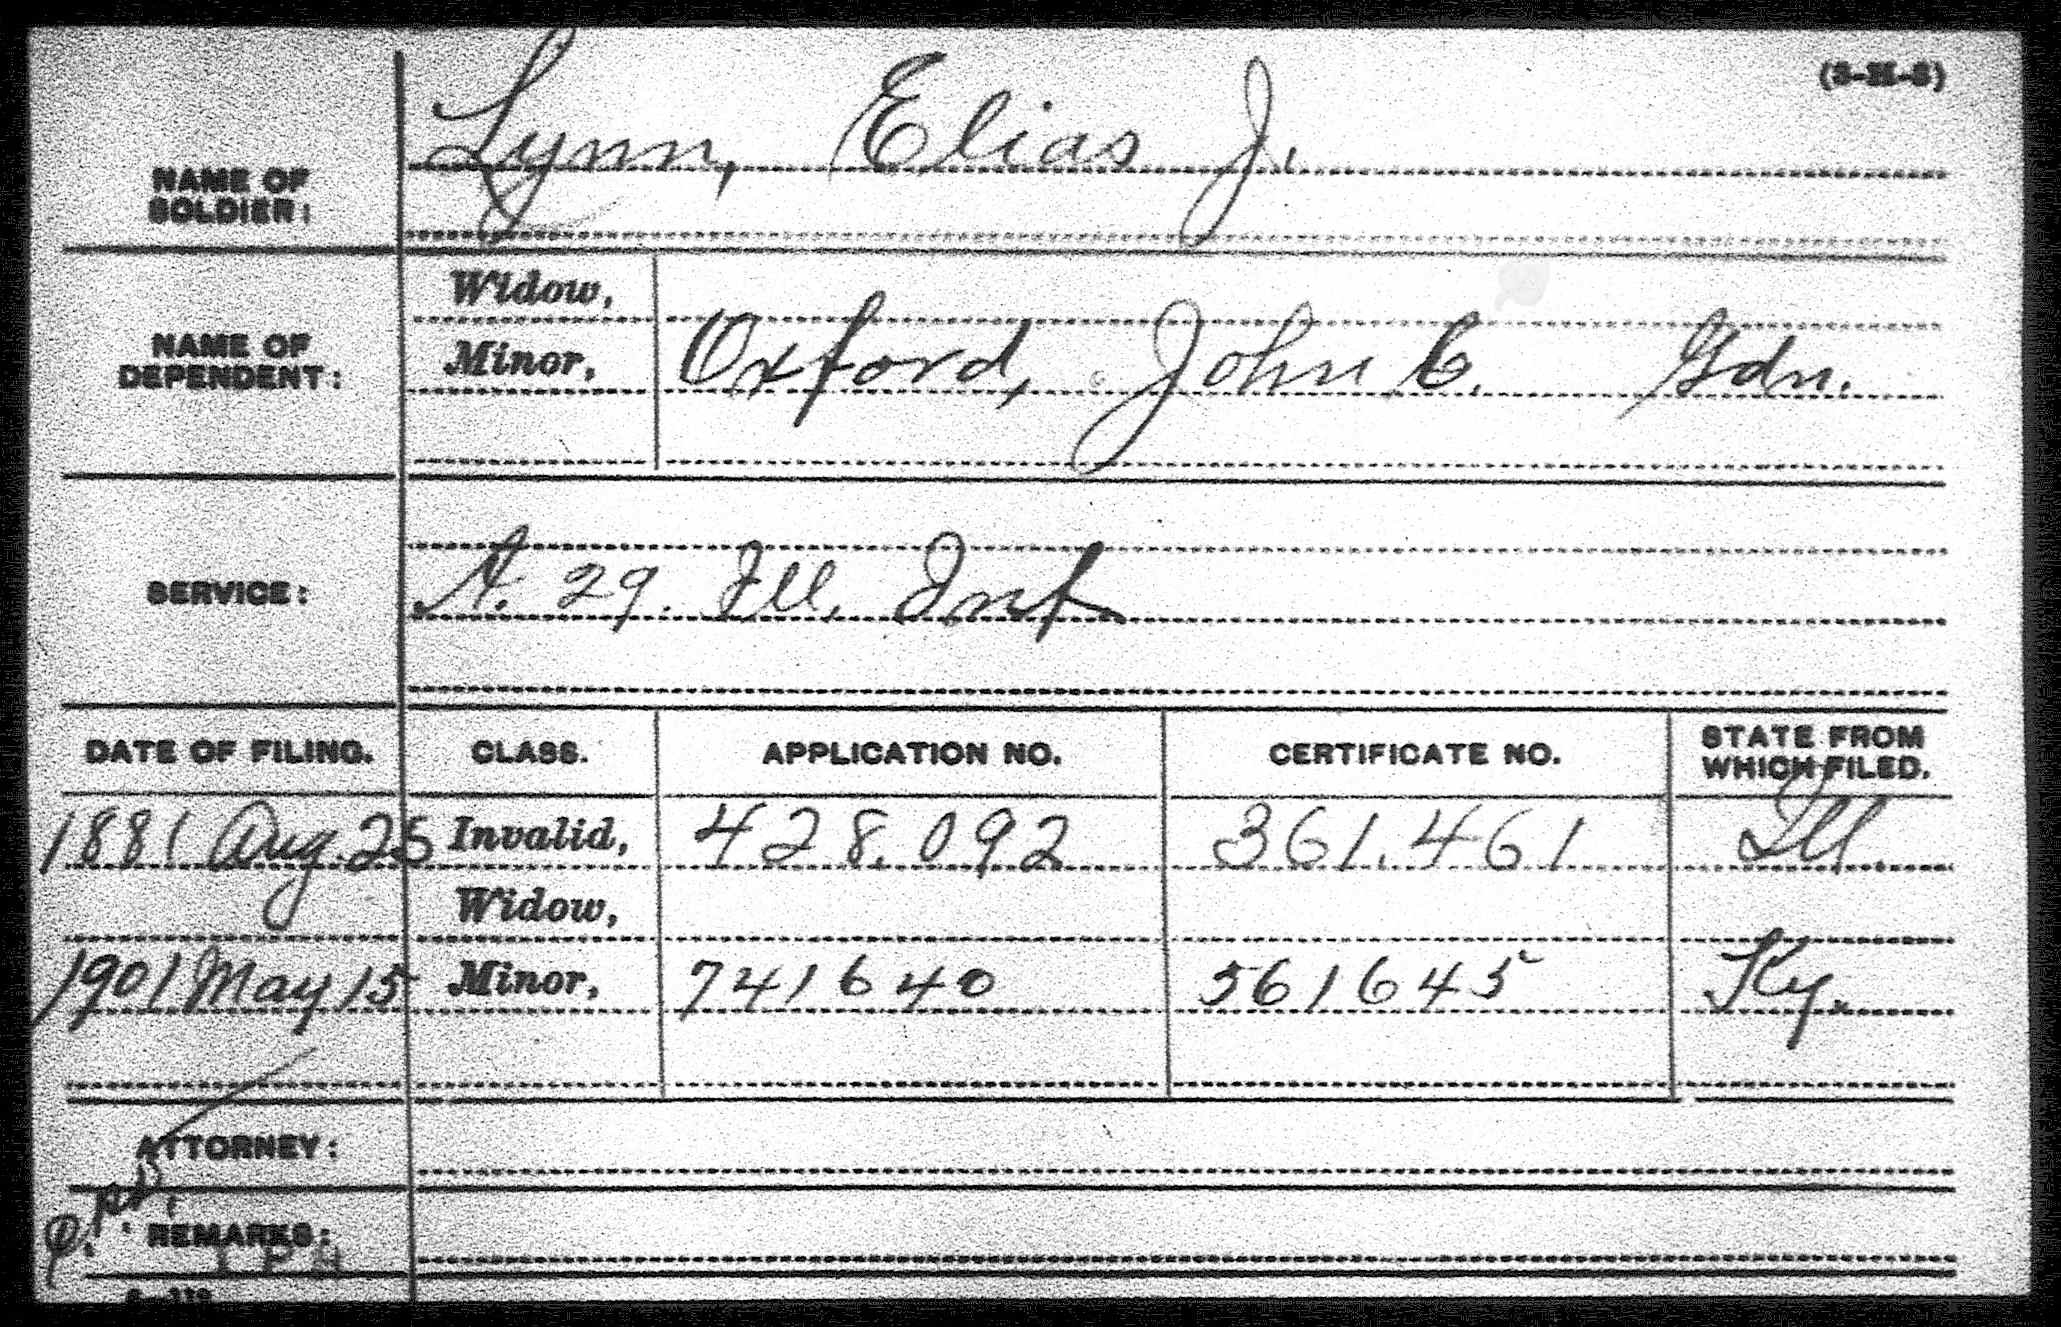 Lynn, Elias J.
NAME OF
SOLDIER:
Widow,
NAME OF
DEPENDENT:
Minor, Oxford, John C. Gdn.
SERVICE: A. 29. Ill. Inf.
DATE OF FILING. CLASS. APPLICATION NO. CERTIFICATE NO. STATE FROM
WHICH FILED.
1881 Aug. 25 Invalid, 428.092 361.461 Ill.
Widow,
1901 May 15 Minor, 741640 561645 Ky.
ATTORNEY:
REMARKS: